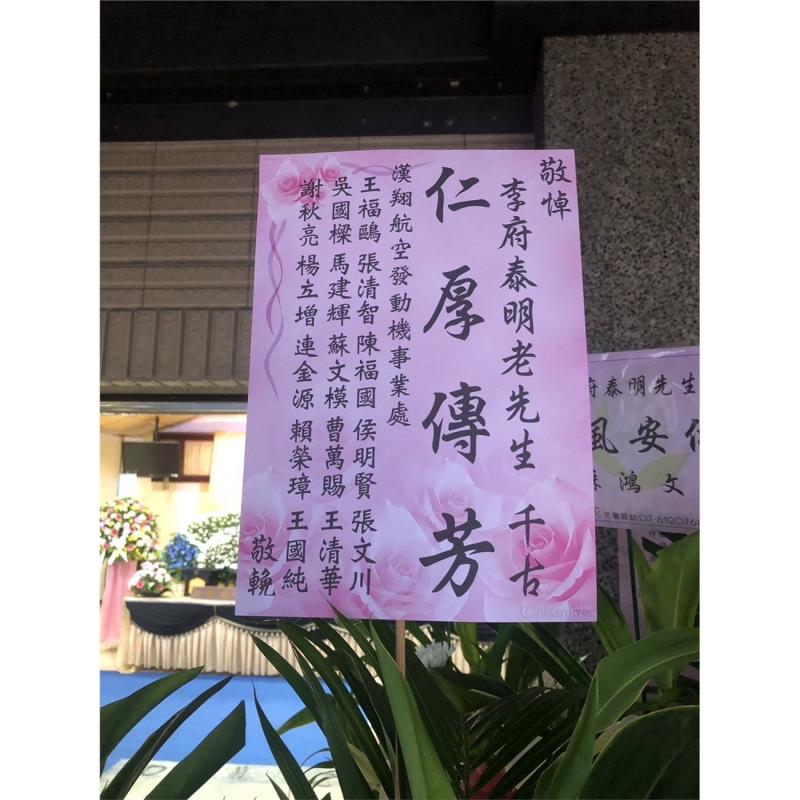 敬悼
李府泰明老先生 千古
仁厚傳芳
漢翔航空發動機事業處
王福鷗 張清智 陳福國 侯明賢 張文川
吳國樑 馬建輝 蘇文模 曹萬賜 王清華
謝秋亮 楊立增 連金源 賴榮璋 王國純
敬輓
府泰明先生
風安
鴻文